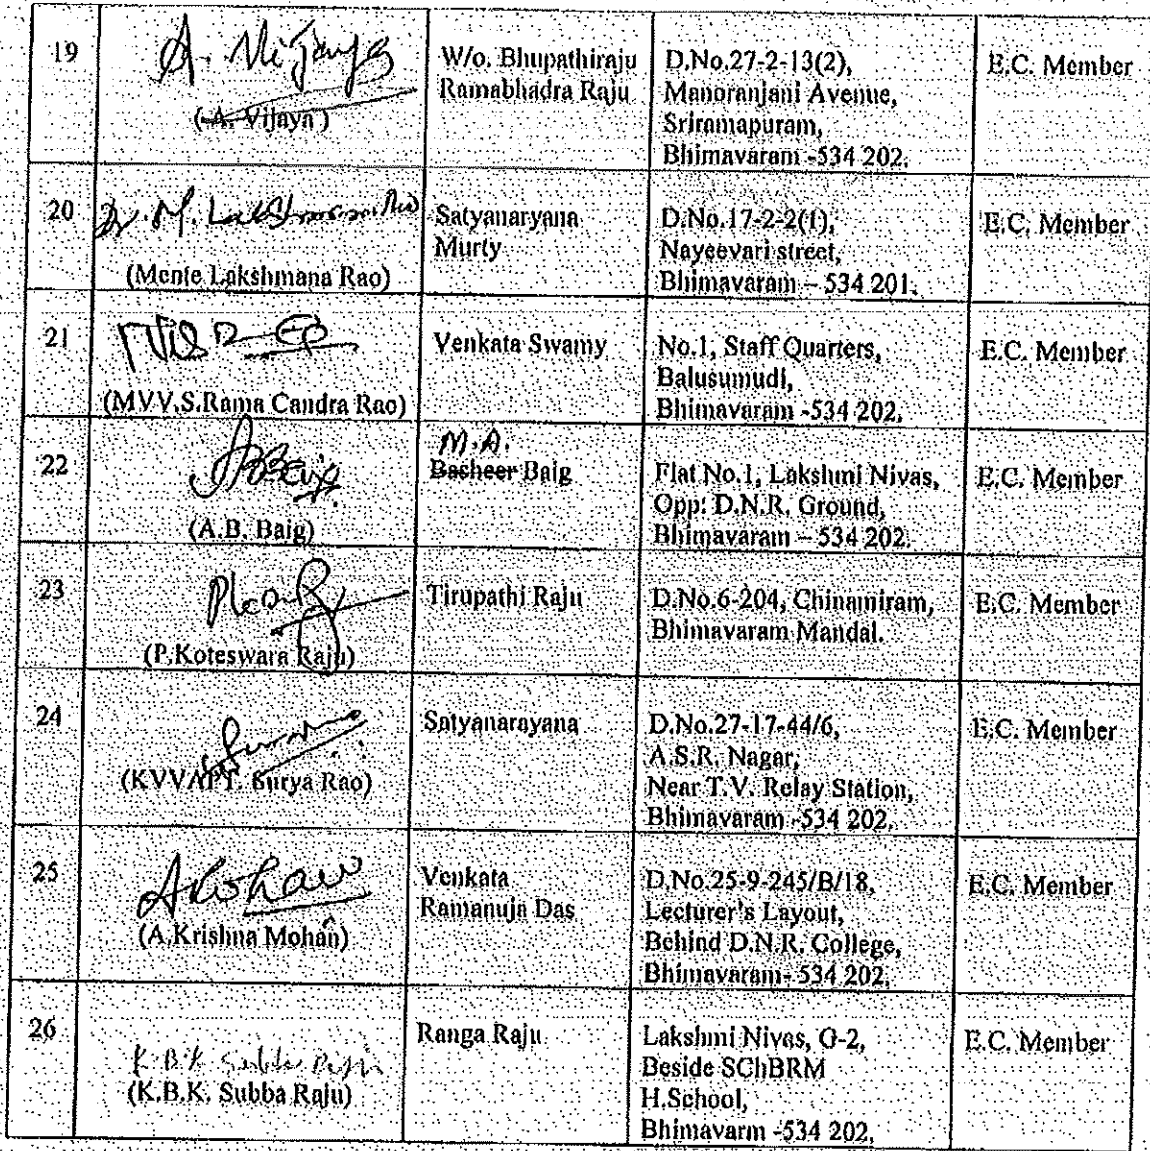 19
A. Vijaya
(A. Vijaya )
W/o. Bhupathiraju
Ramabhadra Raju
D.No.27-2-13(2),
Manoranjani Avenue,
Sriramapuram,
Bhimavaram -534 202.
E.C. Member
20
Dr. M. Lakshmana Rao
(Mente Lakshmana Rao)
Satyanaryana
Murty
D.No.17-2-2(1),
Nayeevari street,
Bhimavaram – 534 201.
E.C. Member
21
(MVV.S.Rama Candra Rao)
Venkata Swamy
No.1, Staff Quarters,
Balusumudi,
Bhimavaram -534 202.
E.C. Member
22
ABBaig
(A.B. Baig)
M.A.
Basheer Baig
Flat No.1, Lakshmi Nivas,
Opp: D.N.R. Ground,
Bhimavaram – 534 202.
E.C. Member
23
(P.Koteswara Raju)
Tirupathi Raju
D.No.6-204, Chinamiram,
Bhimavaram Mandal.
E.C. Member
24
(KVVAPT. Surya Rao)
Satyanarayana
D.No.27-17-44/6,
A.S.R. Nagar,
Near T.V. Relay Station,
Bhimavaram -534 202.
E.C. Member
25
(A.Krishna Mohan)
Venkata
Ramanuja Das
D.No.25-9-245/B/18,
Lecturer's Layout,
Behind D.N.R. College,
Bhimavaram- 534 202.
E.C. Member
26
K.B.K. Subba Raju
(K.B.K. Subba Raju)
Ranga Raju
Lakshmi Nivas, G-2,
Beside SChBRM
H.School,
Bhimavarm -534 202.
E.C. Member